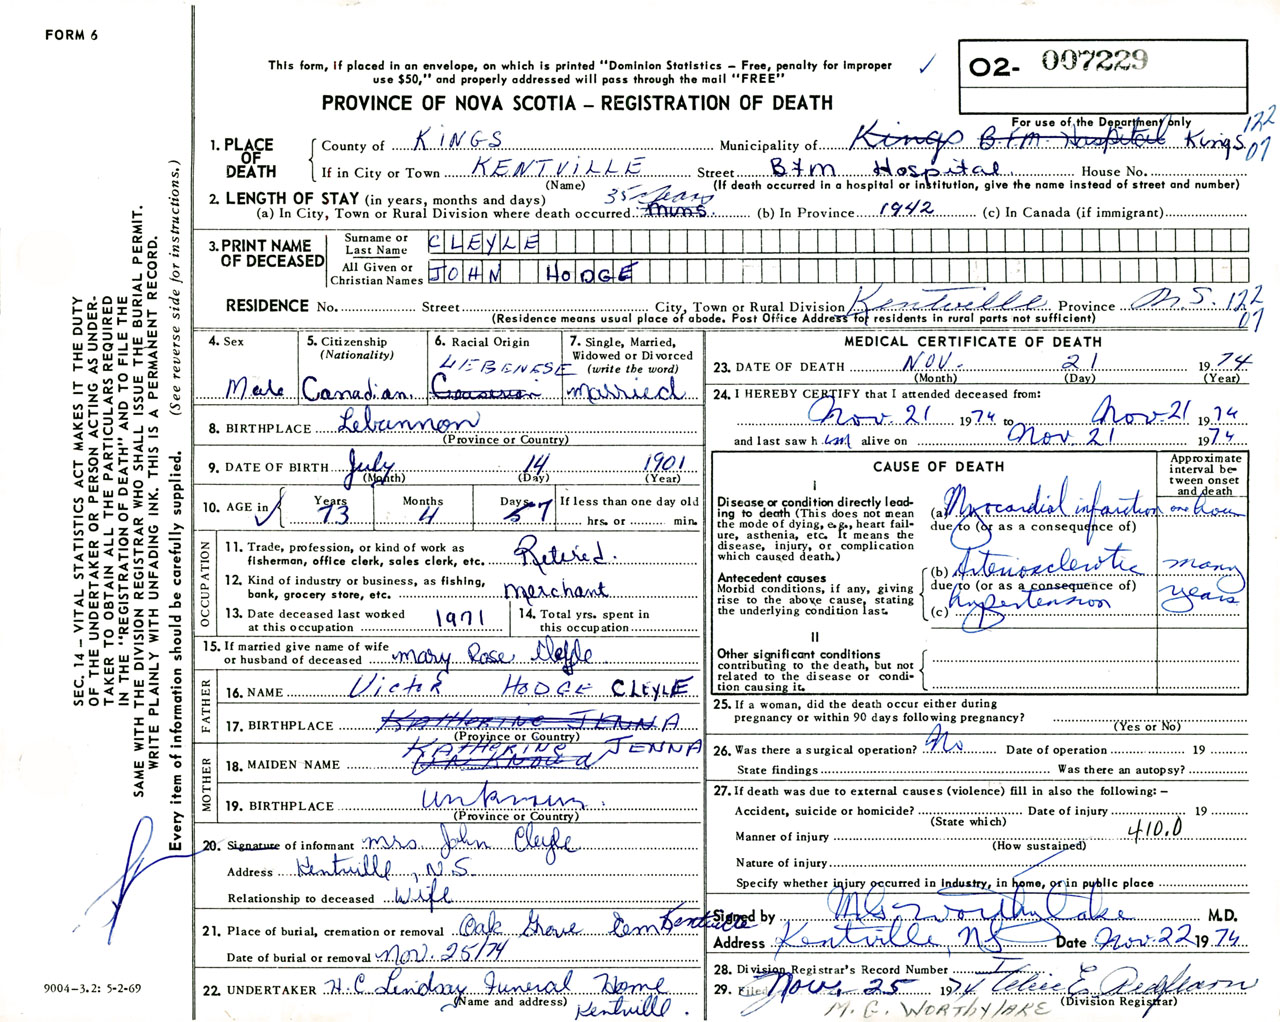 FORM 6
This form, if placed in an envelope, on which is printed "Dominion Statistics – Free, penalty for improper
use $50," and properly addressed will pass through the mail "FREE"
PROVINCE OF NOVA SCOTIA – REGISTRATION OF DEATH
O2- 007229
For use of the Department only
122
07
1. PLACE OF DEATH
County of KINGS Municipality of Kings B+M Hospital Kings
If in City or Town KENTVILLE Street B+M Hospital House No.
(Name) (If death occurred in a hospital or institution, give the name instead of street and number)
2. LENGTH OF STAY (in years, months and days) 35 years
(a) In City, Town or Rural Division where death occurred mins (b) In Province 1942 (c) In Canada (if immigrant)
3. PRINT NAME OF DECEASED
Surname or Last Name CLEYLE
All Given or Christian Names JOHN HODGE
RESIDENCE No. Street City, Town or Rural Division Kentville Province N.S. 122
07
(Residence means usual place of abode. Post Office Address for residents in rural parts not sufficient)
4. Sex
Male
5. Citizenship
(Nationality)
Canadian
6. Racial Origin
LEBENESE
7. Single, Married,
Widowed or Divorced
(write the word)
married
8. BIRTHPLACE Lebannon
(Province or Country)
9. DATE OF BIRTH July 14 1901
(Month) (Day) (Year)
10. AGE in Years 73 Months 4 Days 7 If less than one day old
hrs. or min.
OCCUPATION
11. Trade, profession, or kind of work as
fisherman, office clerk, sales clerk, etc. Retired.
12. Kind of industry or business, as fishing,
bank, grocery store, etc. merchant
13. Date deceased last worked
at this occupation 1971
14. Total yrs. spent in
this occupation
15. If married give name of wife
or husband of deceased mary Rose Cleyle
FATHER
16. NAME Victor HODGE CLEYLE
17. BIRTHPLACE KATHERINE JENNA
(Province or Country)
MOTHER
KATHERINE JENNA
18. MAIDEN NAME Unknown
19. BIRTHPLACE Unknown.
(Province or Country)
20. Signature of informant mrs John Cleyle
Address Kentville, N.S.
Relationship to deceased Wife
21. Place of burial, cremation or removal Oak Grove Cem Kentville
Date of burial or removal Nov. 25/74
22. UNDERTAKER H.C. Lindsay Funeral Home
(Name and address) Kentville.
MEDICAL CERTIFICATE OF DEATH
23. DATE OF DEATH NOV. 21 1974
(Month) (Day) (Year)
24. I HEREBY CERTIFY that I attended deceased from:
Nov. 21 1974 to Nov 21 1974
and last saw him alive on Nov 21 1974
CAUSE OF DEATH
Approximate
interval be-
tween onset
and death
I
Disease or condition directly lead-
ing to death (This does not
mean the mode of dying, e.g., heart fail-
ure, asthenia, etc. It means the
disease, injury, or complication
which caused death.)
(a) Myocardial infarction one hour
due to (or as a consequence of)
Antecedent causes
Morbid conditions, if any, giving
rise to the above cause, stating
the underlying condition last.
(b) Arteriosclerotic many
due to (or as a consequence of)
(c) hypertension years
II
Other significant conditions
contributing to the death, but not
related to the disease or condi-
tion causing it.
25. If a woman, did the death occur either during
pregnancy or within 90 days following pregnancy?
(Yes or No)
26. Was there a surgical operation? No Date of operation 19
State findings Was there an autopsy?
27. If death was due to external causes (violence) fill in also the following: –
Accident, suicide or homicide? Date of injury 19
(State which)
Manner of injury 410.0
(How sustained)
Nature of injury
Specify whether injury occurred in Industry, in home, or in public place
Signed by M G Worthylake M.D.
Address Kentville, NS Date Nov. 22 1974
28. Division Registrar's Record Number
29. Filed Nov. 25 1974
(Division Registrar)
M. G. WORTHYLAKE
SEC. 14 – VITAL STATISTICS ACT MAKES IT THE DUTY
OF THE UNDERTAKER OR PERSON ACTING AS UNDER-
TAKER TO OBTAIN ALL THE PARTICULARS REQUIRED
IN THE "REGISTRATION OF DEATH" AND TO FILE THE
SAME WITH THE DIVISION REGISTRAR WHO SHALL ISSUE THE BURIAL PERMIT.
WRITE PLAINLY WITH UNFADING INK. THIS IS A PERMANENT RECORD.
Every item of information should be carefully supplied. (See reverse side for instructions.)
9004–3.2: 5-2-69